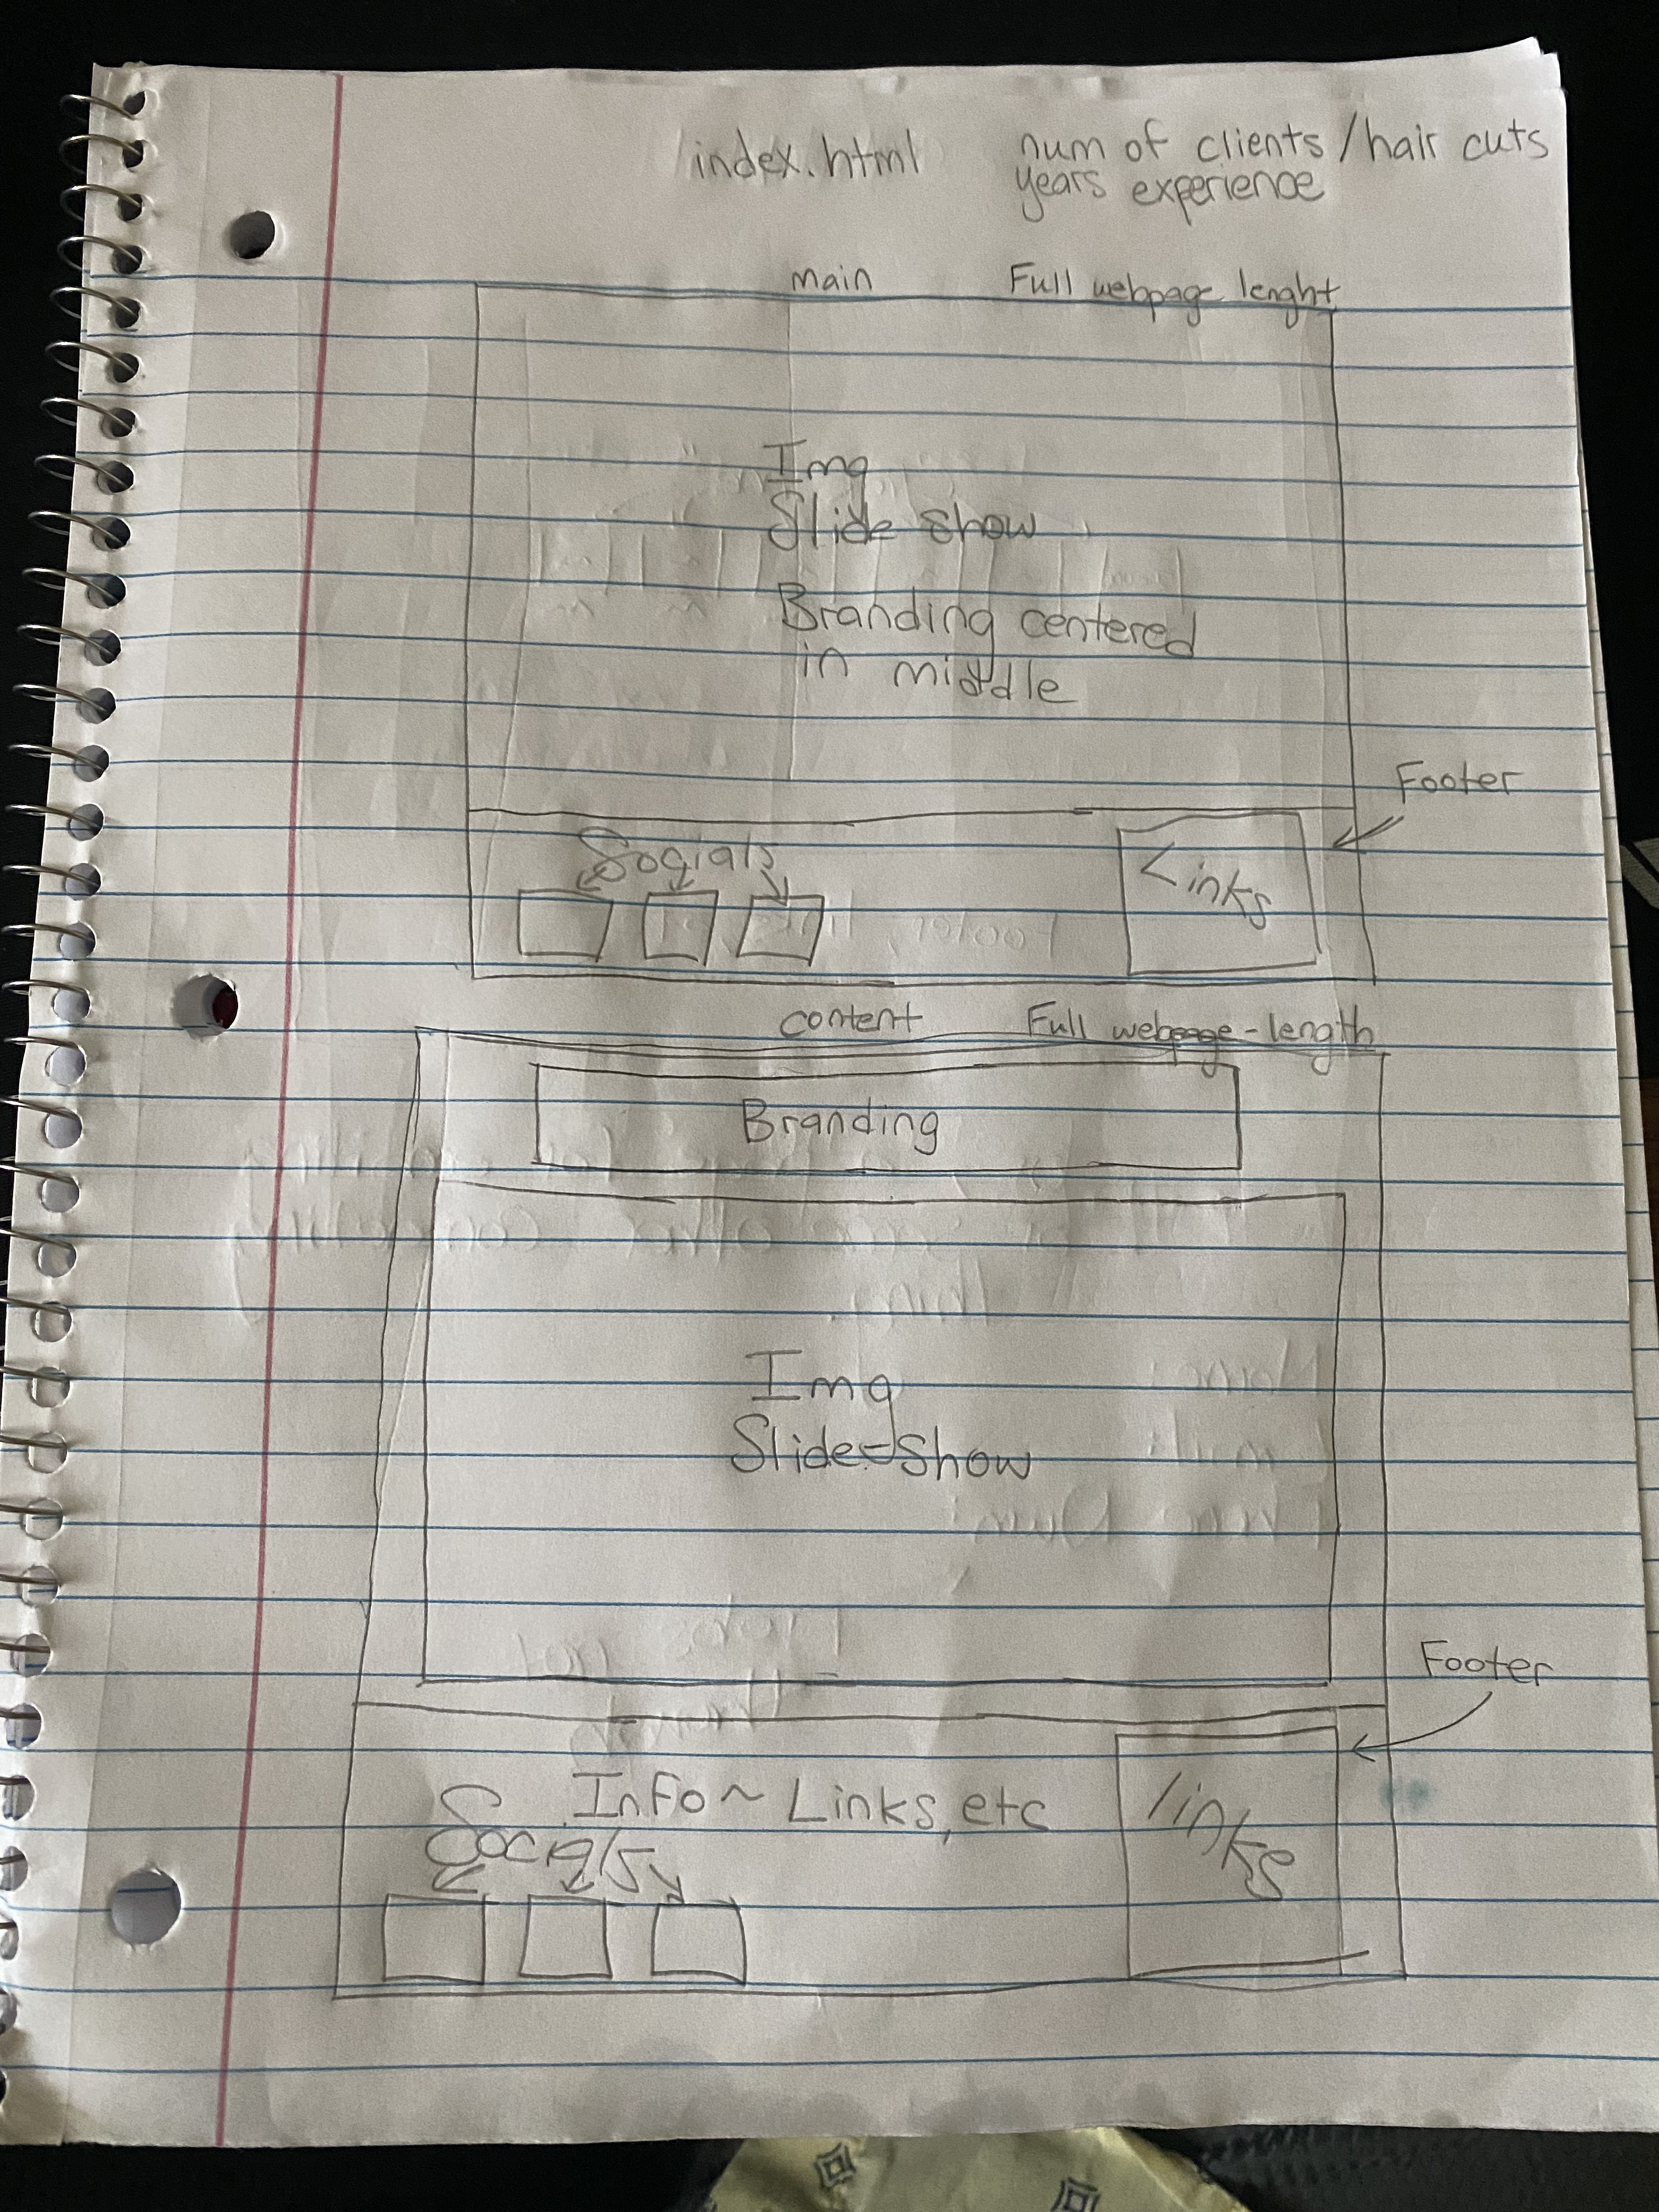 /index.html
num of clients / hair cuts
years experience
main
Full webpage lenght
Img
Slide show
Branding centered
in middle
Footer
Socials
Links
content
Full webpage-length
Branding
Img
Slide-Show
Footer
Info ~ Links, etc
Socials
links